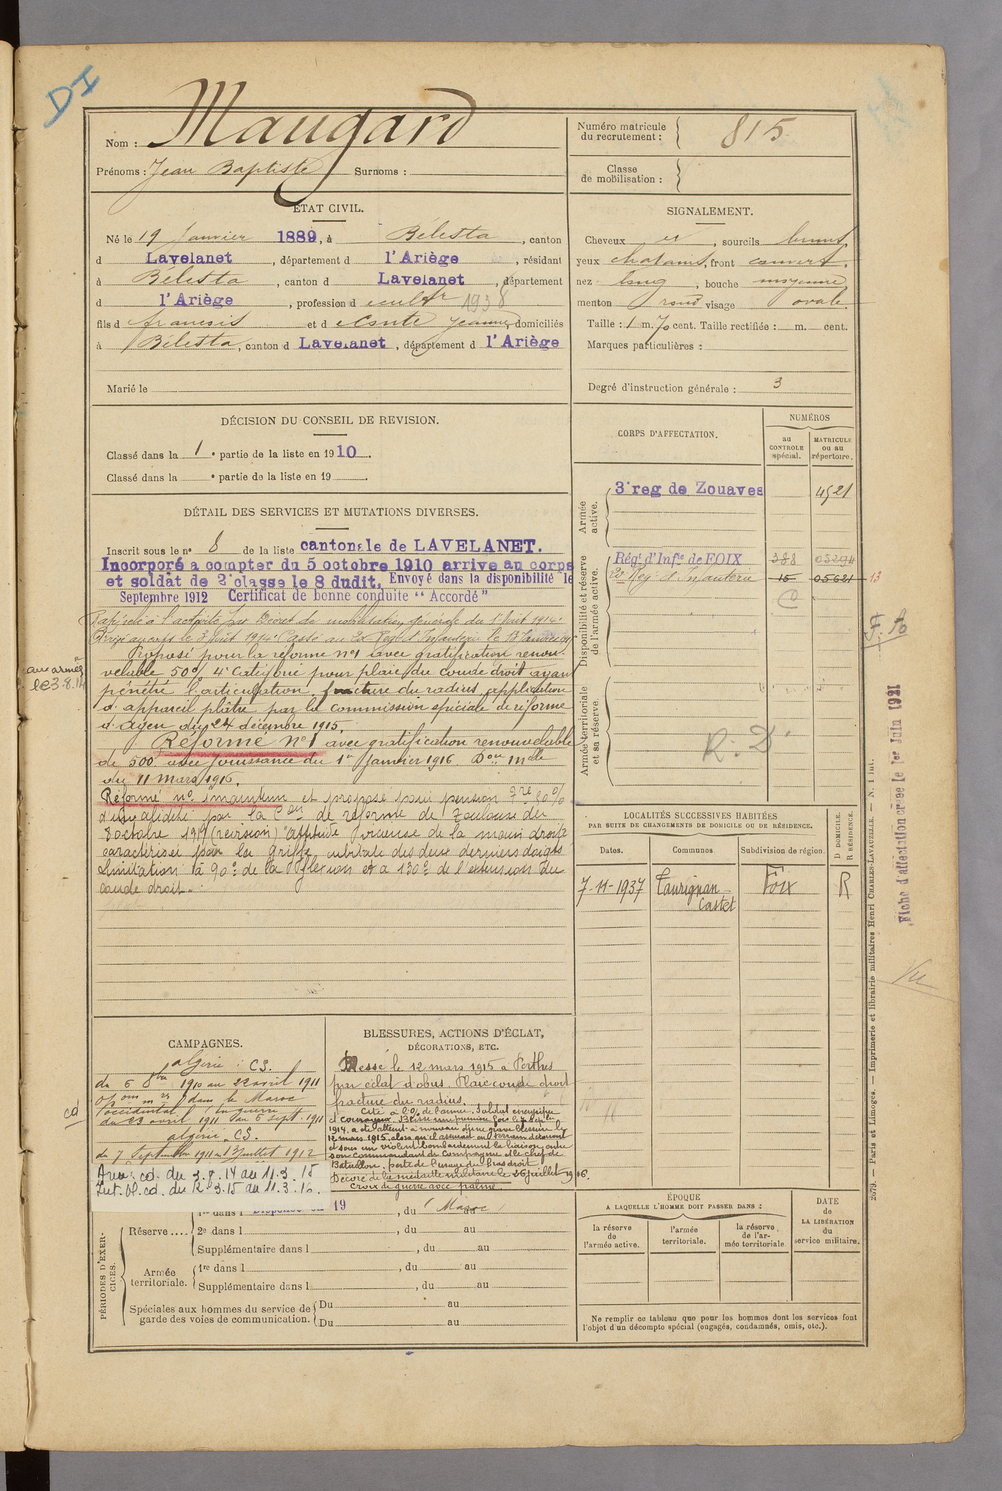 DI
Nom : Maugard
Prénoms : Jean Baptiste Surnoms :
Numéro matricule du recrutement : 815
Classe de mobilisation :
ÉTAT CIVIL.
Né le 19 Janvier 1889, à Bélesta, canton
d Lavelanet, département d l'Ariège, résidant
à Bélesta, canton d Lavelanet, département
d l'Ariège, profession d cultr 1938
fils d françois et d Jeanne, domiciliés
à Bélesta, canton d Lavelanet, département d l'Ariège
Marié le
SIGNALEMENT.
Cheveux, sourcils bruns
yeux chatains, front couvert,
nez long, bouche moyenne
menton rond visage ovale
Taille : 1 m. 70 cent. Taille rectifiée : m. cent.
Marques particulières :
Degré d'instruction générale : 3
DÉCISION DU CONSEIL DE REVISION.
Classé dans la 1e partie de la liste en 1910.
Classé dans la e partie de la liste en 19
DÉTAIL DES SERVICES ET MUTATIONS DIVERSES.
Inscrit sous le n° 8 de la liste cantonale de LAVELANET.
Incorporé à compter du 5 octobre 1910 arrivé au corps
et soldat de 2e classe le 8 dudit. Envoyé dans la disponibilité le
Septembre 1912 Certificat de bonne conduite "Accordé"
Rappelé à l'activité par Décret de mobilisation générale du 1er Août 1914.
aux armées
le 3.8.14
Proposé pour la réforme n°1 avec gratification renou-
velable 50% 4e Catégorie pour plaie du coude droit ayant
pénétré l'articulation, fracture du radius, application
d'appareil plâtré par la commission spéciale de réforme
d'Agen du 24 décembre 1915.
Réformé n°1 avec gratification renouvelable
de 500f avec jouissance du 1er Janvier 1916 Don melle
du 11 mars 1916.
Réformé n° 1 maintenu et proposé pour pension
d'invalidité par la Con de réforme de Toulouse du
8 octobre 1919 (revision) "attitude vicieuse de la main droite
caractérisée par la griffe cubitale des deux derniers doigts
Limitation à 90° de la flexion et à 130° de l'extension du
coude droit.
CORPS D'AFFECTATION.
NUMÉROS
au CONTRÔLE spécial.
MATRICULE ou au répertoire.
Armée active.
3e reg de Zouaves 4521
Disponibilité et réserve de l'armée active.
Régt d'Infie de FOIX 388
20 Reg d'Infanterie 15 05621 13
C
Armée territoriale et sa réserve.
R. D.
Fiche d'affectation créée le 1er Juin 1921
Vu
LOCALITÉS SUCCESSIVES HABITÉES
PAR SUITE DE CHANGEMENTS DE DOMICILE OU DE RÉSIDENCE.
Dates. Communes Subdivision de région. D DOMICILE. R RÉSIDENCE.
7-11-1937 Taurignan Castet Foix R
CAMPAGNES.
algérie : CS.
du 5 8bre 1910 au 22 avril 1911
opons mres dans le Maroc
occidental, En guerre
du 23 avril 1911 au 6 sept. 1911
algérie. CS.
du 7 Septembre 1911 au 13 juillet 1912
cd
cd. du 3.8.14 au 11.3.15
Int. Bl. cd. du 12.3.15 au 11.3.16.
BLESSURES, ACTIONS D'ÉCLAT, DÉCORATIONS, ETC.
Blessé le 12 mars 1915 à Perthes
par éclat d'obus. Plaie coude droit
fracture du radius.
Cité à l'O/ de l'armée. Soldat énergique
et courageux. Blessé une première fois le
1914, a été atteint à nouveau d'une grave blessure le
12 mars 1915, alors qu'il assurait en terrain découvert
et sous un violent bombardement la liaison entre
son commandant de Compagnie et le chef de
Bataillon, perte de l'usage du bras droit.
Décoré de la médaille militaire le 26 juillet 1916.
Croix de guerre avec palme.
PÉRIODES D'EXERCICES.
Réserve....
1re dans l Dispensé en 19, du (Maroc) au
2e dans l, du au
Supplémentaire dans l, du au
Armée territoriale.
1re dans l, du au
Supplémentaire dans l, du au
Spéciales aux hommes du service de garde des voies de communication.
Du au
Du au
ÉPOQUE
A LAQUELLE L'HOMME DOIT PASSER DANS :
la réserve de l'armée active.
l'armée territoriale.
la réserve de l'armée territoriale.
DATE DE LA LIBÉRATION du service militaire.
Ne remplir ce tableau que pour les hommes dont les services font
l'objet d'un décompte spécial (engagés, condamnés, omis, etc.).
2079. — Paris et Limoges. — Imprimerie et librairie militaires Henri CHARLES-LAVAUZELLE. — N. 1 int.